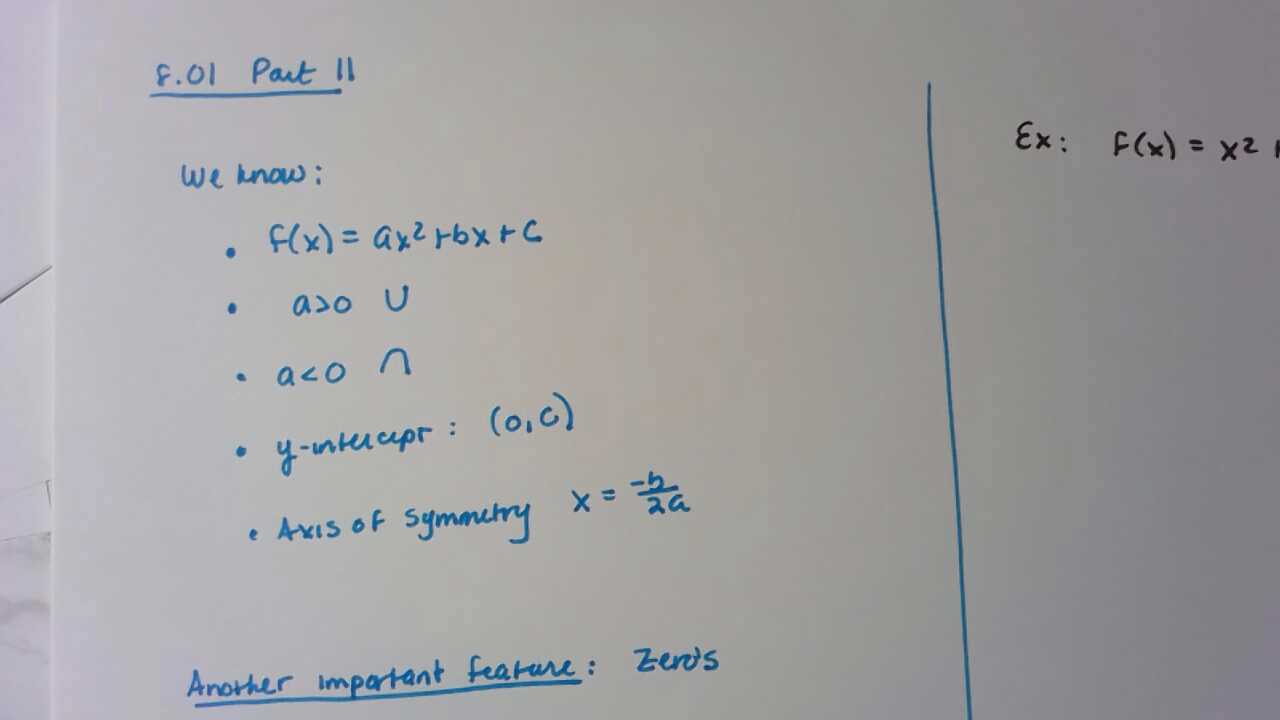 8.01 Part II
We know:
• f(x) = ax²+bx+c
• a>0 ∪
• a<0 ∩
• y-intercept : (0,c)
• Axis of symmetry x = -b/2a
Another important feature: Zero's
Ex: f(x) = x²